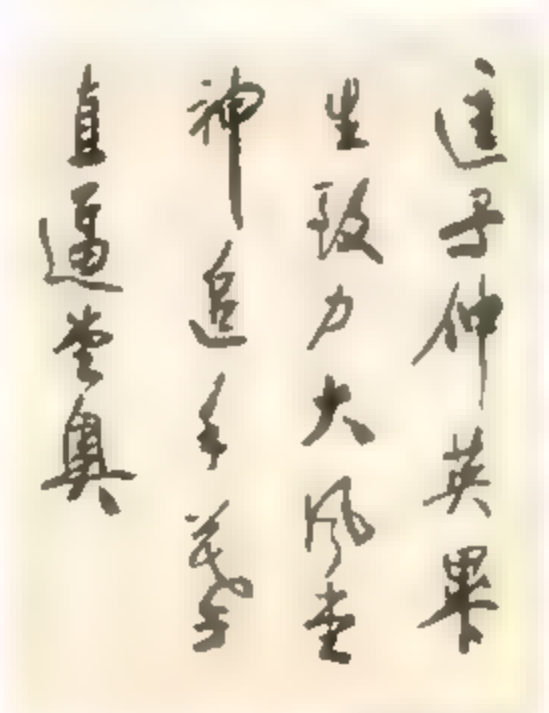 匡子仲英畢
生致力大風堂
神追手摹
直逼堂奧